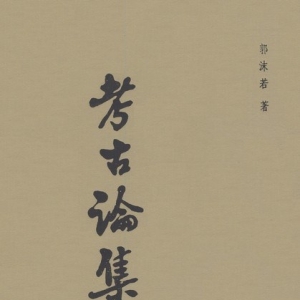 郭沫若 著
考古论集